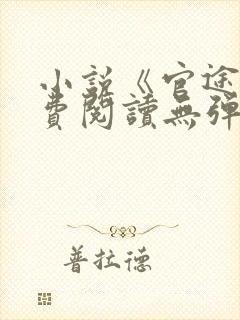 小說《官途
費閱讀無彈
普拉德